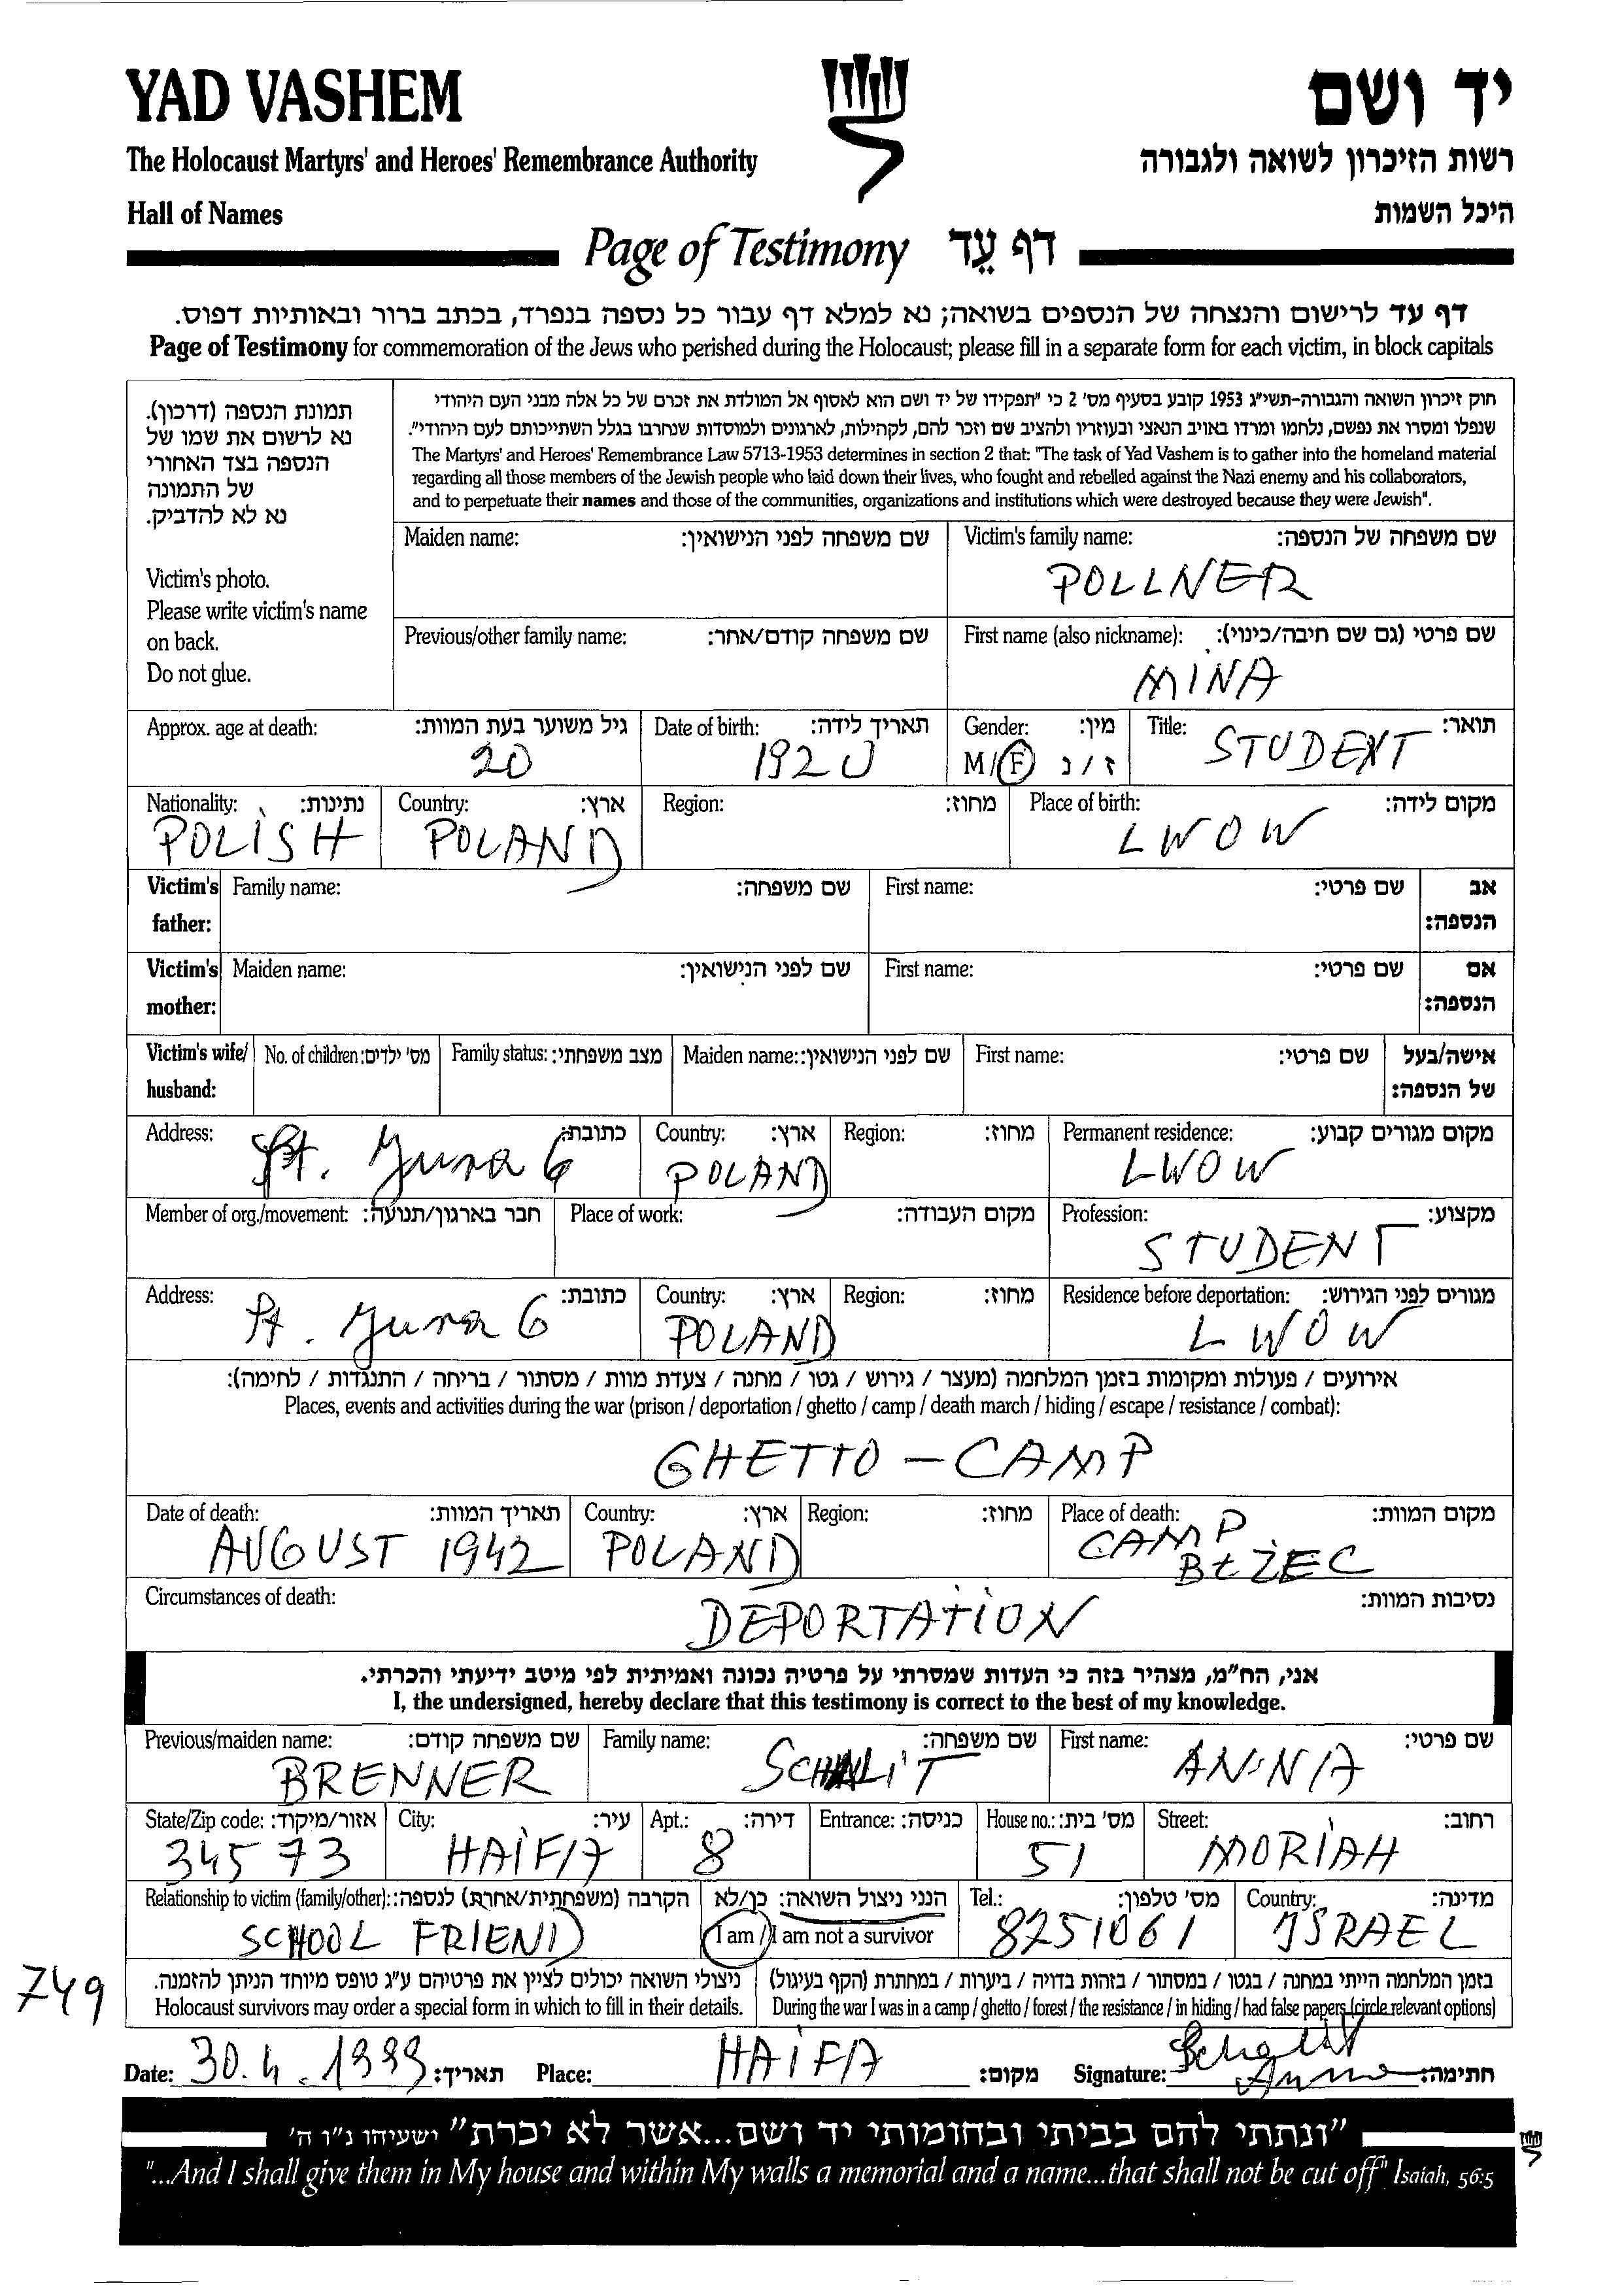 YAD VASHEM
יד ושם
The Holocaust Martyrs' and Heroes' Remembrance Authority
רשות הזיכרון לשואה ולגבורה
Hall of Names
היכל השמות
Page of Testimony דף עֵד
דף עד לרישום והנצחה של הנספים בשואה; נא למלא דף עבור כל נספה בנפרד, בכתב ברור ובאותיות דפוס.
Page of Testimony for commemoration of the Jews who perished during the Holocaust; please fill in a separate form for each victim, in block capitals
תמונת הנספה (דרכון).
נא לרשום את שמו של
הנספה בצד האחורי
של התמונה
נא לא להדביק.
Victim's photo.
Please write victim's name
on back.
Do not glue.
חוק זיכרון השואה והגבורה-תשי"ג 1953 קובע בסעיף מס' 2 כי "תפקידו של יד ושם הוא לאסוף אל המולדת את זכרם של כל אלה מבני העם היהודי
שנפלו ומסרו את נפשם, נלחמו ומרדו באויב הנאצי ובעוזריו ולהציב שם וזכר להם, לקהילות, לארגונים ולמוסדות שנחרבו בגלל השתייכותם לעם היהודי".
The Martyrs' and Heroes' Remembrance Law 5713-1953 determines in section 2 that: "The task of Yad Vashem is to gather into the homeland material
regarding all those members of the Jewish people who laid down their lives, who fought and rebelled against the Nazi enemy and his collaborators,
and to perpetuate their names and those of the communities, organizations and institutions which were destroyed because they were Jewish".
Maiden name: שם משפחה לפני הנישואין: Victim's family name: שם משפחה של הנספה:
POLLNER
Previous/other family name: שם משפחה קודם/אחר: First name (also nickname): שם פרטי (גם שם חיבה/כינוי):
MINA
Approx. age at death: גיל משוער בעת המוות: Date of birth: תאריך לידה: Gender: מין: Title: תואר:
20 1920 M/F ז/נ STUDENT
Nationality: נתינות: Country: ארץ: Region: מחוז: Place of birth: מקום לידה:
POLISH POLAND LWOW
Victim's father: Family name: שם משפחה: First name: שם פרטי: אב הנספה:
Victim's mother: Maiden name: שם לפני הנישואין: First name: שם פרטי: אם הנספה:
Victim's wife/ husband: No. of children: מס' ילדים: Family status: מצב משפחתי: Maiden name: שם לפני הנישואין: First name: שם פרטי: אישה/בעל של הנספה:
Address: כתובת: Country: ארץ: Region: מחוז: Permanent residence: מקום מגורים קבוע:
Jura 6 POLAND LWOW
Member of org./movement: חבר בארגון/תנועה: Place of work: מקום העבודה: Profession: מקצוע:
STUDENT
Address: כתובת: Country: ארץ: Region: מחוז: Residence before deportation: מגורים לפני הגירוש:
Jura 6 POLAND LWOW
אירועים / פעולות ומקומות בזמן המלחמה (מעצר / גירוש / גטו / מחנה / צעדת מוות / מסתור / בריחה / התנגדות / לחימה):
Places, events and activities during the war (prison / deportation / ghetto / camp / death march / hiding / escape / resistance / combat):
GHETTO - CAMP
Date of death: תאריך המוות: Country: ארץ: Region: מחוז: Place of death: מקום המוות:
AUGUST 1942 POLAND CAMP
BEŁŻEC
Circumstances of death: נסיבות המוות:
DEPORTATION
אני, הח"מ, מצהיר בזה כי העדות שמסרתי על פרטיה נכונה ואמיתית לפי מיטב ידיעתי והכרתי.
I, the undersigned, hereby declare that this testimony is correct to the best of my knowledge.
Previous/maiden name: שם משפחה קודם: Family name: שם משפחה: First name: שם פרטי:
BRENNER SCHALIT ANNA
State/Zip code: אזור/מיקוד: City: עיר: Apt.: דירה: Entrance: כניסה: House no.: מס' בית: Street: רחוב:
34573 HAIFA 8 51 MORIAH
Relationship to victim (family/other): הקרבה (משפחתית/אחרת) לנספה: הנני ניצול השואה: כן/לא Tel.: מס' טלפון: Country: מדינה:
SCHOOL FRIEND I am / I am not a survivor 8251061 ISRAEL
749
ניצולי השואה יכולים לציין את פרטיהם ע"ג טופס מיוחד הניתן להזמנה.
Holocaust survivors may order a special form in which to fill in their details.
בזמן המלחמה הייתי במחנה / בגטו / במסתור / בזהות בדויה / ביערות / במחתרת (הקף בעיגול)
During the war I was in a camp / ghetto / forest / the resistance / in hiding / had false papers (circle relevant options)
Date: 30.4.1999 תאריך: Place: HAIFA מקום: Signature: Schalit Anna חתימה:
"ונתתי להם בביתי ובחומותי יד ושם...אשר לא יכרת" ישעיהו נ"ו ה'
"...And I shall give them in My house and within My walls a memorial and a name...that shall not be cut off" Isaiah, 56:5